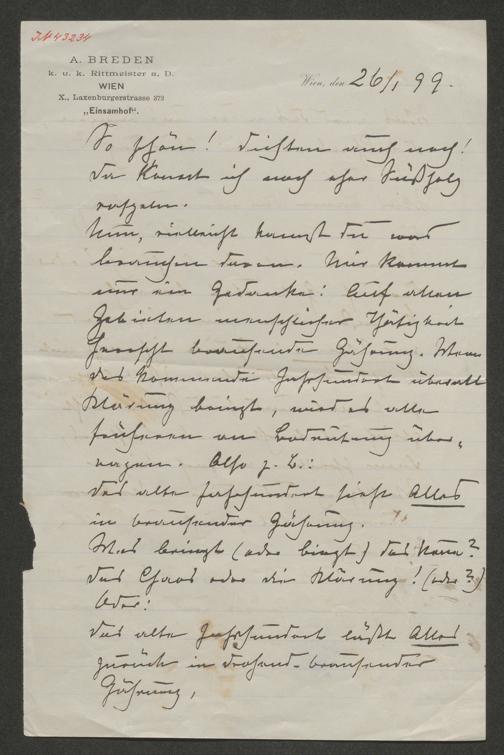 IN 43234
A. BREDEN
k. u. k. Rittmeister a. D.
WIEN
X., Laxenburgerstrasse 272
„Einsamhof“.
Wien, den 26/1 99.
So schön! Dichten auch noch!
Da könnt ich noch eher Süßholz
raspeln.
Nun, vielleicht kannst du was
brauchen davon. Mir kommt
nur ein Gedanke: Auf allen
Gebieten menschlicher Thätigkeit
herrscht brausende Gährung. Wenn
das kommende Jahrhundert überall
Klärung bringt, wird es alle
früheren an Bedeutung über-
ragen. Also z. B.:
Das alte Jahrhundert sieht Alles
in brausender Gährung.
Was bringt (oder birgt) das Neue?
Das Chaos oder die Klärung! (oder ?)
Oder:
Das alte Jahrhundert läßt Alles
zurück in drohend-brausender
Gährung,